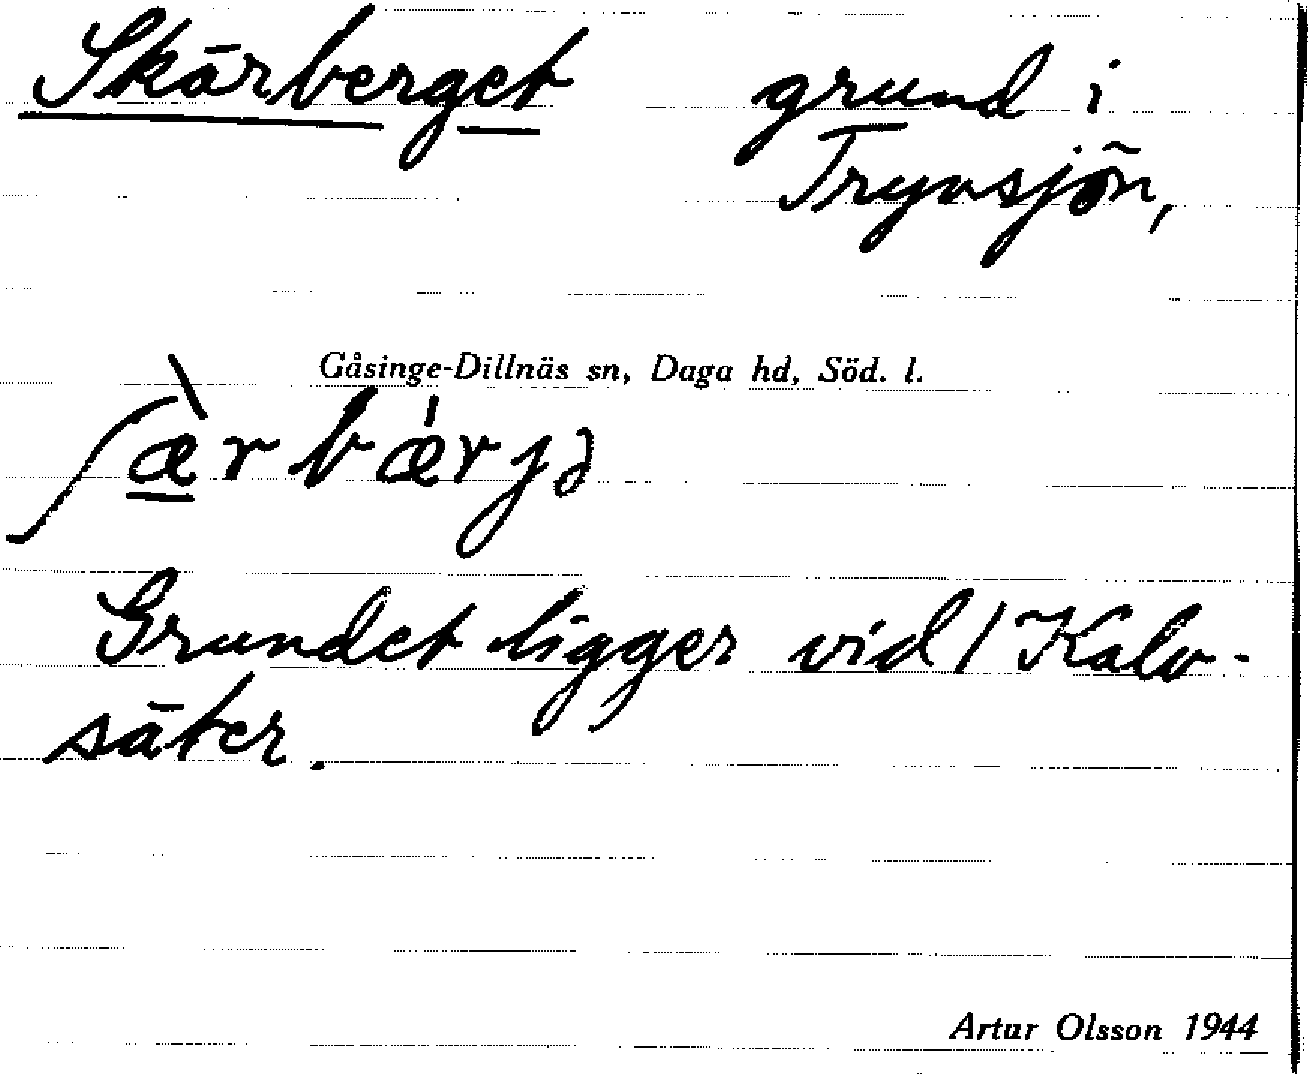 Skärberget grund i
Trynsjön,
Gåsinge-Dillnäs sn, Daga hd, Söd. l.
ʃæ̀rbǽrjə
Grundet ligger vid / Kalv-
säter.
Artur Olsson 1944